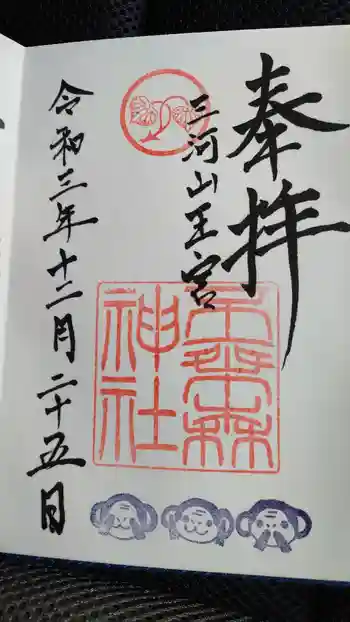 奉拝
三河山王宮
神社
令和三年十二月二十五日